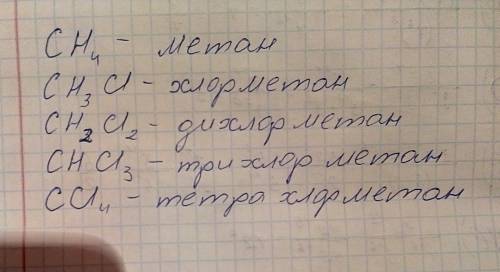 CH₄ - метан
CH₃Cl - хлорметан
CH₂Cl₂ - дихлорметан
CHCl₃ - трихлорметан
CCl₄ - тетрахлорметан